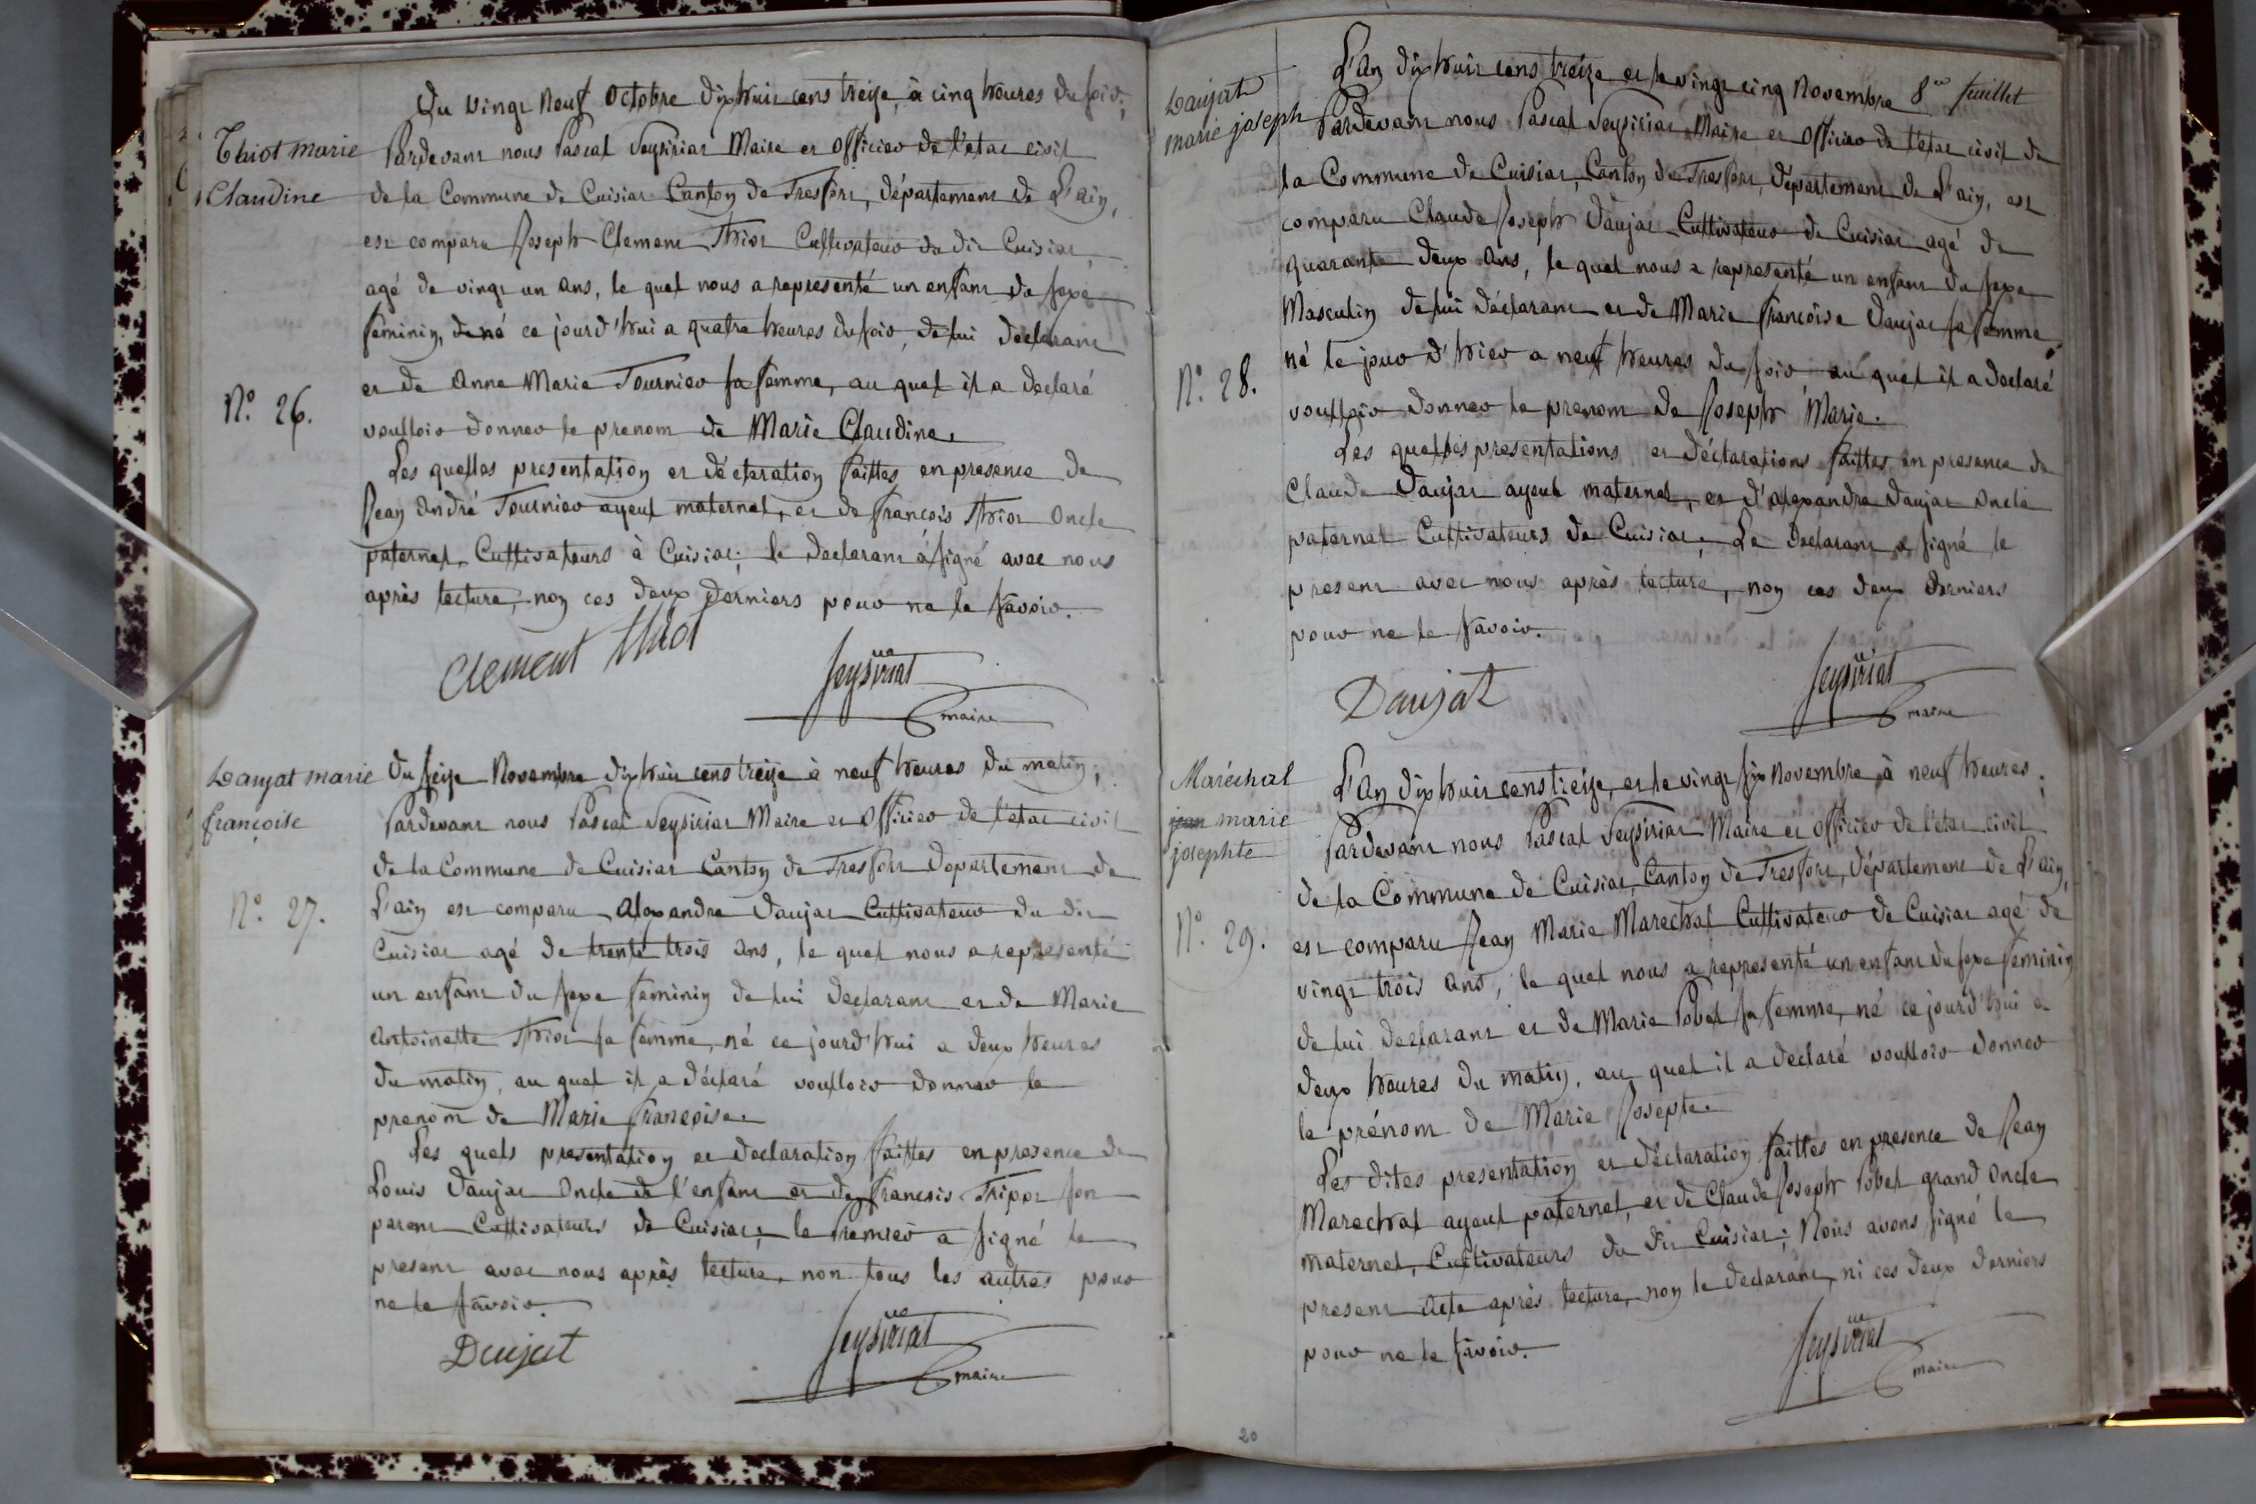 Du vingt neuf Octobre dix huit cens treize, à cinq heures du soir;
Thiot marie
Claudine
Pardevant nous Pascal Seysiriat Maire et Officier de l'etat civil
de la Commune de Cuisiat Canton de Tresfort, département de L'ain,
est comparu Joseph Clement Thiot Cultivateur du dit Cuisiat,
agé de vingt un ans, le quel nous a representé un enfant du sexe
feminin, de né ce jourd'hui a quatre heures du soir, de lui declarant
et de Anne Marie Tournier sa femme, au quel il a declaré
N.º 26.
voulloir donner le prenom de Marie Claudine.
Les quelles presentation et déclaration faittes en presence de
Jean André Tournier ayeul maternel, et de françois Thiot Oncle
paternel, Cultivateurs à Cuisiat; le declarant à signé avec nous
après lecture, non ces deux derniers pour ne le savoir.
Clement thiot
Seysiriat
maire
Daujat marie
françoise
Du seize Novembre dix huit cens treize à neuf heures du matin;
Pardevant nous Pascal Seysiriat Maire et Officier de l'etat civil
de la Commune de Cuisiat Canton de Tresfort Departement de
N.º 27.
L'ain est comparu Alexandre Daujat Cultivateur du dit
Cuisiat agé de trente trois ans, le quel nous a representé
un enfant du sexe feminin de lui declarant et de Marie
Antoinette Thiot sa femme, né ce jourd'hui a deux heures
du matin, au quel il a déclaré voulloir donner le
prenom de Marie françoise.
Les quels presentation et declaration faittes en presence de
Louis Daujat Oncle de l'enfant et de francois Trippoz son
parent Cultivateurs de Cuisiat; le Premier a signé le
present avec nous après lecture, non tous les autres pour
ne le savoir.
Daujat
Seysiriat
maire
8.e feuillet
Daujat
marie joseph
L'An dix huit cens treize et le vingt cinq Novembre
Pardevant nous Pascal Seysiriat Maire et Officier de l'etat civil de
la Commune de Cuisiat, Canton de Tresfort, Département de L'ain, est
comparu Claude Joseph Daujat Cultivateur de Cuisiat agé de
quarante deux Ans, le quel nous a representé un enfant du sexe
Masculin de lui déclarant et de Marie françoise Daujat sa femme
né le jour d'hier a neuf heures du soir au quel il a declaré
N.º 28.
voulloir donner le prenom de Joseph Marie.
Les quelles presentations et déclarations faittes en presence de
Claude Daujat ayeul maternel, et d'alexandre Daujat Oncle
paternel Cultivateurs de Cuisiat, Le Declarant a signé le
present avec nous après lecture, non ces deux derniers
pour ne le savoir.
Daujat
Seysiriat
maire
Maréchal
jean marie
josephte
L'An dix huit cens treize, et le vingt six Novembre, à neuf heures;
Pardevant nous Pascal Seysiriat Maire et Officier de l'état civil
de la Commune de Cuisiat, Canton de Tresfort, département de L'ain,
N.º 29.
est comparu Jean Marie Marechal Cultivateur de Cuisiat agé de
vingt trois ans, le quel nous a representé un enfant du sexe feminin
de lui declarant et de Marie Pobel sa femme, né ce jourd'hui a
deux heures du matin, au quel il a declaré voulloir donner
le prénom de Marie Josepte.
Les dites presentation et déclaration faittes en presence de Jean
Marechal ayeul paternel, et de Claude Joseph Pobel grand Oncle
maternel, Cultivateurs du dit Cuisiat; Nous avons signé le
present Acte après lecture, non le declarant, ni ces deux derniers
pour ne le savoir.
Seysiriat
maire
20